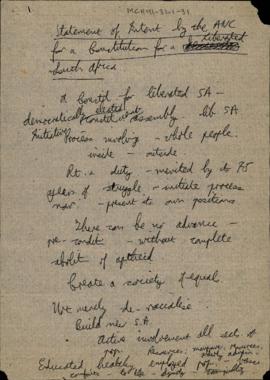 MCH91-32-1-31
1
Statement of Intent by the ANC
for a Constitution for a Liberated
South Africa
A constit for liberated SA –
democratically elected
Constituent assembly. lib. SA
Initiating
Process involving – whole people
inside – outside
Rt. & duty – merited by its 75
years of struggle – initiate process
now – present its own positions
There can be no advance –
pre-condit – without complete
abolit of apartheid
Create a society of equal.
Not merely de-racialise.
Build new S.A.
Active involvement all sect. of
pop.
Educated healthy employed pop.